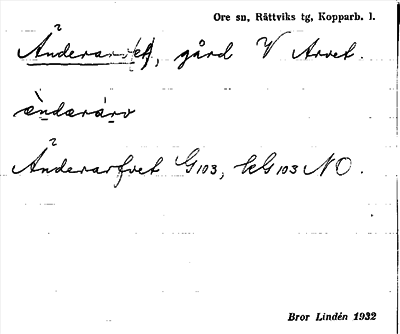 Ore sn, Rättviks tg, Kopparb. l.
Änderarv(et), gård V Arvet.
ændærárv
Änderarfvet G103, kG103 NO.
Bror Lindén 1932